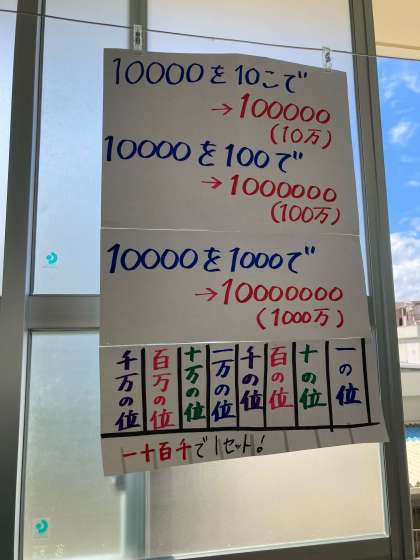 10000を10こで
→100000
(10万)
10000を100で
→1000000
(100万)
10000を1000で
→10000000
(1000万)
千万の位 百万の位 十万の位 一万の位 千の位 百の位 十の位 一の位
一十百千で1セット!